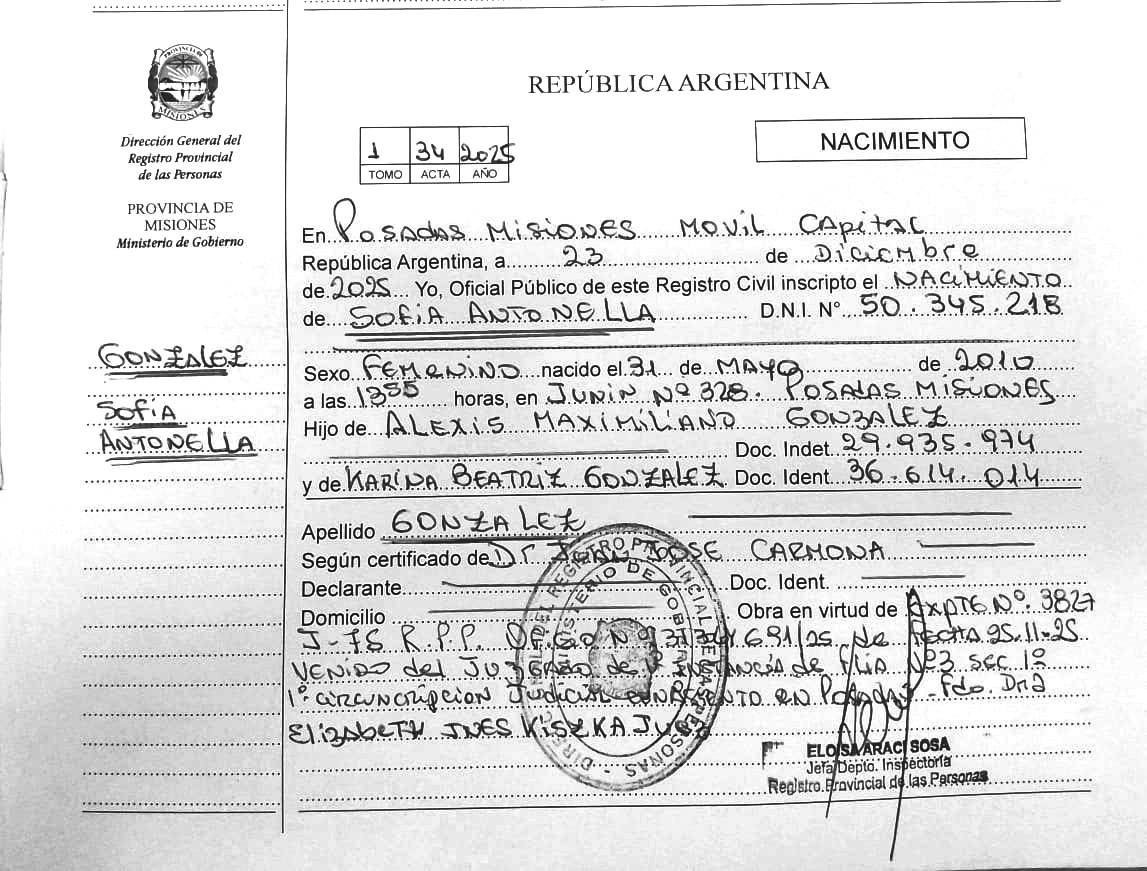 PROVINCIA DE
MISIONES
Dirección General del
Registro Provincial
de las Personas
PROVINCIA DE
MISIONES
Ministerio de Gobierno
GONZALEZ
SOFIA
ANTONELLA
REPÚBLICA ARGENTINA
1 34 2025
TOMO ACTA AÑO
NACIMIENTO
En POSADAS MISIONES MOVIL CAPITAL
República Argentina, a 23 de DICIEMBRE
de 2025 Yo, Oficial Público de este Registro Civil inscripto el NACIMIENTO
de SOFIA ANTONELLA D.N.I. N° 50.345.218
Sexo FEMENINO nacido el 31 de MAYO de 2010
a las 1355 horas, en JUNIN Nº 328. POSADAS MISIONES
Hijo de ALEXIS MAXIMILIANO GONZALEZ
Doc. Indet. 29.935.974
y de KARINA BEATRIZ GONZALEZ Doc. Ident. 36.614.014
Apellido GONZALEZ
Según certificado de Dr JOSE CARMONA
Declarante Doc. Ident.
Domicilio Obra en virtud de Expte. Nº 3827
J-75 R.P.P. OFICIO Nº 691/25 de FECHA 25.11.25
VENIDO del JUZGADO de INSTANCIA de Flia Nº3 sec 1º
1º circunscripcion Judicial en Posadas Fdo. Dra
Elizabeth INES KISZKA
DIRECCION DEL REGISTRO PROVINCIAL DE LAS PERSONAS
MINISTERIO DE GOBIERNO
ELOISA ARACI SOSA
Jefa Depto. Inspectoría
Registro Provincial de las Personas